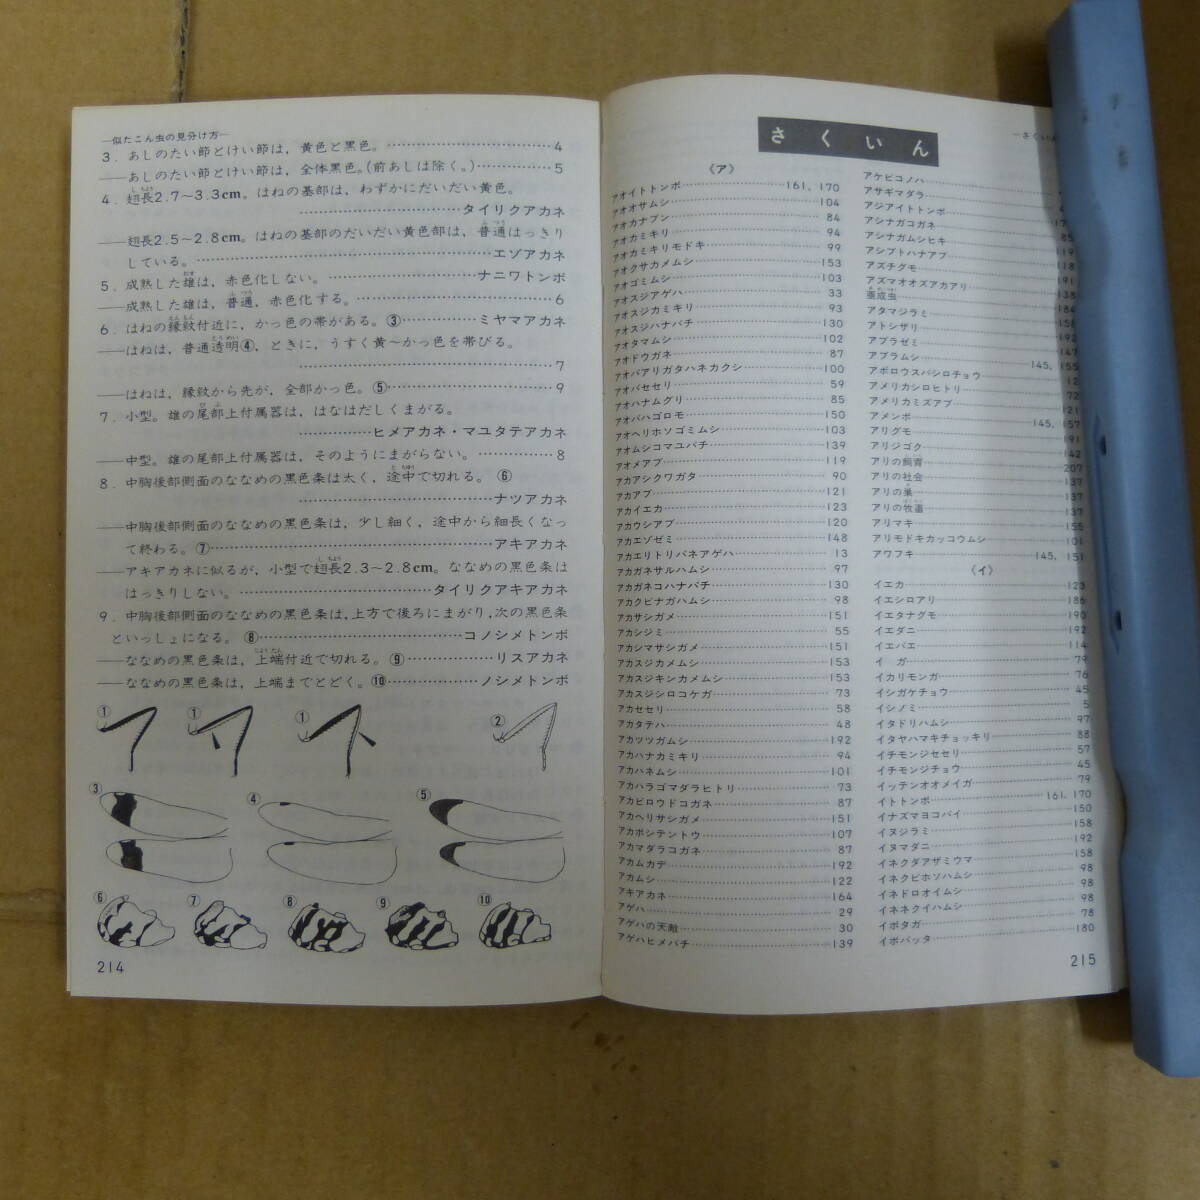 —似たこん虫の見分け方—
3．あしのたい節とけい節は，黄色と黒色。……4
——あしのたい節とけい節は，全体黒色。(前あしは除く。)……5
4．翅長2.7〜3.3cm。はねの基部は，わずかにだいだい黄色。
……タイリクアカネ
——翅長2.5〜2.8cm。はねの基部のだいだい黄色部は，普通はっきり
している。……エゾアカネ
5．成熟した雄は，赤色化しない。……ナニワトンボ
——成熟した雄は，普通，赤色化する。……6
6．はねの縁紋付近に，かっ色の帯がある。③……ミヤマアカネ
——はねは，普通透明④，ときに，うすく黄〜かっ色を帯びる。
……7
——はねは，縁紋から先が，全部かっ色。⑤……9
7．小型。雄の尾部上付属器は，はなはだしくまがる。
……ヒメアカネ・マユタテアカネ
——中型。雄の尾部上付属器は，そのようにまがらない。……8
8．中胸後部側面のななめの黒色条は太く，途中で切れる。⑥
……ナツアカネ
——中胸後部側面のななめの黒色条は，少し細く，途中から細長くなっ
て終わる。⑦……アキアカネ
——アキアカネに似るが，小型で翅長2.3〜2.8cm。ななめの黒色条は
はっきりしない。……タイリクアキアカネ
9．中胸後部側面のななめの黒色条は，上方で後ろにまがり，次の黒色条
といっしょになる。⑧……コノシメトンボ
——ななめの黒色条は，上端付近で切れる。⑨……リスアカネ
——ななめの黒色条は，上端までとどく。⑩……ノシメトンボ
① ① ① ②
③ ④ ⑤
⑥ ⑦ ⑧ ⑨ ⑩
214
—さくいん
さくいん
《ア》
アオイトトンボ……161, 170
アオオサムシ……104
アオカナブン……84
アオカミキリ……94
アオカミキリモドキ……99
アオクサカメムシ……153
アオゴミムシ……103
アオスジアゲハ……33
アオスジカミキリ……93
アオスジハナバチ……130
アオタマムシ……102
アオドウガネ……87
アオバアリガタハネカクシ……100
アオバセセリ……59
アオハナムグリ……85
アオバハゴロモ……150
アオヘリホソゴミムシ……103
アオムシコマユバチ……139
アオメアブ……119
アカアシクワガタ……90
アカアブ……121
アカイエカ……123
アカウシアブ……120
アカエゾゼミ……148
アカエリトリバネアゲハ……13
アカガネサルハムシ……97
アカガネコハナバチ……130
アカクビナガハムシ……98
アカサシガメ……151
アカシジミ……55
アカシマサシガメ……151
アカスジカメムシ……153
アカスジキンカメムシ……153
アカスジシロコケガ……73
アカセセリ……58
アカタテハ……48
アカツツガムシ……192
アカハナカミキリ……94
アカハネムシ……101
アカハラゴマダラヒトリ……73
アカビロウドコガネ……87
アカヘリサシガメ……151
アカホシテントウ……107
アカマダラコガネ……87
アカムカデ……192
アカムシ……122
アキアカネ……164
アゲハ……29
アゲハの天敵……30
アゲハヒメバチ……139
アケビコノハ……
アサギマダラ……
アジアイトトンボ……
アシナガコガネ……
アシナガムシヒキ……85
アシブトハナアブ……119
アズチグモ……118
アズマオオズアカアリ……191
亜成虫……138
アタマジラミ……184
アトシザリ……158
アブラゼミ……192
アブラムシ……147
アポロウスバシロチョウ……145, 155
アメリカシロヒトリ……12
アメリカミズアブ……72
アメンボ……121
アリグモ……145, 157
アリジゴク……191
アリの飼育……142
アリの社会……207
アリの巣……137
アリの牧畜……137
アリマキ……137
アリモドキカッコウムシ……155
アワフキ……101
145, 151
《イ》
イエカ……123
イエシロアリ……186
イエタナグモ……190
イエダニ……192
イエバエ……114
イ　ガ……79
イカリモンガ……76
イシガケチョウ……45
イシノミ……5
イタドリハムシ……97
イタヤハマキチョッキリ……88
イチモンジセセリ……57
イチモンジチョウ……45
イッテンオオメイガ……79
イトトンボ……161, 170
イナズマヨコバイ……150
イヌジラミ……158
イヌマダニ……192
イネクダアザミウマ……158
イネクビホソハムシ……98
イネドロオイムシ……98
イネネクイハムシ……98
イボタガ……78
イボバッタ……180
215